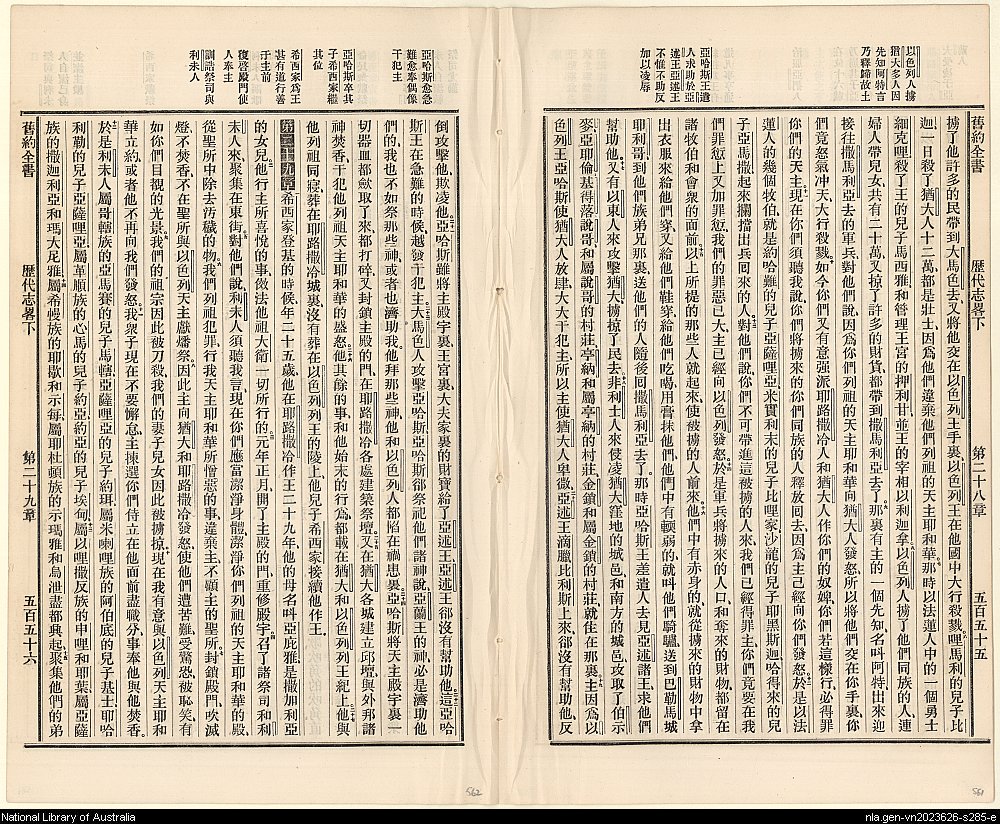 舊約全書 歷代志畧下 第二十八章 五百五十五
以色列人擄
猶大多人因
先知阿特言
乃釋歸故土
亞哈斯王遣
人求助於亞
述王亞述王
不惟不助反
加以凌辱
擄了他許多的民帶到大馬色去又將他交在以色列王手裏以色列王在他國中大行殺戮哩馬利的兒子比
迦一日殺了猶大人十二萬都是壯士因爲他們違棄他們列祖的天主耶和華那時以法蓮人中的一個勇士
細克哩殺了王的兒子馬西雅和管理王宮的押利甘並王的宰相以利迦拿以色列人擄了他們同族的人連
婦人帶兒女共有二十萬又掠了許多的財貨都帶到撒馬利亞去了那裏有主的一個先知名呌阿特出來迎
接往撒馬利亞去的軍兵對他們說因爲你們列祖的天主耶和華向猶大人發怒所以將他們交在你手裏你
們竟怒氣冲天大行殺戮如今你們又有意強派耶路撒冷人和猶大人作你們的奴婢你們若這樣行必得罪
你們的天主現在你們須聽我說你們將擄來的你們同族的人釋放囘去因爲主已經向你們發怒於是以法
蓮人的幾個牧伯就是約哈難的兒子亞薩哩亞米實利末的兒子比哩家沙龍的兒子耶黑斯迦哈得來的兒
子亞馬撒起來攔擋出兵囘來的人對他們說你們不可帶進這被擄的人來我們已經得罪主你們竟要在我
們罪愆上又加罪愆我們的罪惡已大主已經向以色列發怒於是軍兵將擄來的人口和奪來的財物都留在
諸牧伯和會衆的面前以上所提的那些人就起來使被擄的人前來他們中有赤身的就從擄來的財物中拿
出衣服來給他們穿又給他們鞋穿給他們吃喝用膏抹他們他們中有輭弱的就呌他們騎驢送到巴勒馬城
耶利哥到他們族弟兄那裏送他們的人隨後囘撒馬利亞去了那時亞哈斯王差遣人去見亞述諸王求他們
幫助他又有以東人來攻擊猶大擄掠了民去非利士人來侵凌猶大窪地的城邑和南方的城邑攻取了伯示
麥亞耶倫基得落說哥和屬說哥的村莊亭納和屬亭納的村莊金鎖和屬金鎖的村莊就住在那裏主因爲以
色列王亞哈斯使猶大人放肆大大干犯主所以主使猶大人卑微亞述王滴臘比利斯上來卻沒有幫助他反
亞哈斯愈急
難愈奉偶像
干犯主
亞哈斯卒其
子希西家繼
其位
希西家爲王
甚有道行善
于主前
復啓殿門使
人奉主
訓誥祭司與
利未人
倒攻擊他欺凌他亞哈斯雖將主殿宇裏王宮裏大夫家裏的財寶給了亞述王亞述王卻沒有幫助他這亞哈
斯王在急難的時候越發干犯主大馬色人攻擊亞哈斯亞哈斯卻祭祀他們諸神說亞蘭王的神必是濟助他
們的我也不如祭那些神或者也濟助我他拜那些神他和以色列人都陷在禍患裏亞哈斯將天主殿宇裏一
切器皿都斂取了來都打碎又封鎖主殿的門在耶路撒冷各處建築祭壇又在猶大各城建立邱壇與外邦諸
神焚香干犯他列祖天主耶和華的盛怒他其餘的事和他始末的行爲都載在猶大和以色列列王紀上他與
他列祖同寢葬在耶路撒冷城裏沒有葬在以色列列王的陵上他兒子希西家接續他作王
第二十九章希西家登基的時候年二十五歲他在耶路撒冷作王二十九年他的母名呌亞庇雅是撒加利亞
的女兒他行主所喜悅的事傚法他祖大衛一切所行的元年正月開了主殿的門重修殿宇召了諸祭司和利
未人來聚集在東街對他們說利未人須聽我言現在你們應當潔淨身體潔淨你們列祖的天主耶和華的殿
從聖所中除去汚穢的物我們列祖犯罪行我天主耶和華所憎惡的事違棄主不顧主的聖所封鎖殿門吹滅
燈不焚香不在聖所與以色列天主獻燔祭因此主向猶大和耶路撒冷發怒使他們遭苦難受驚惡被恥笑有
如你們目覩的光景我們的祖宗因此被刀殺我們的妻子兒女因此被擄掠現在我有意與以色列天主耶和
華立約或者他不再向我們發怒我衆子現在不要懈怠主揀選你們侍立在他面前盡職分事奉他與他焚香
於是利未人屬哥轄族的亞馬賽的兒子馬轄亞薩哩亞的兒子約珥屬米喇哩族的阿伯底的兒子基士耶哈
利勒的兒子亞薩哩亞屬革順族的心馬的兒子約亞約亞的兒子埃甸屬以哩撒反族的申哩和耶葉屬亞薩
族的撒迦利亞和瑪大尼雅屬希幔族的耶歇和示每屬耶杜頓族的示瑪雅和烏泄盡都興起聚集他們的弟
舊約全書 歷代志畧下 第二十九章 五百五十六
562
561
National Library of Australia
nla.gen-vn2023626-s285-e